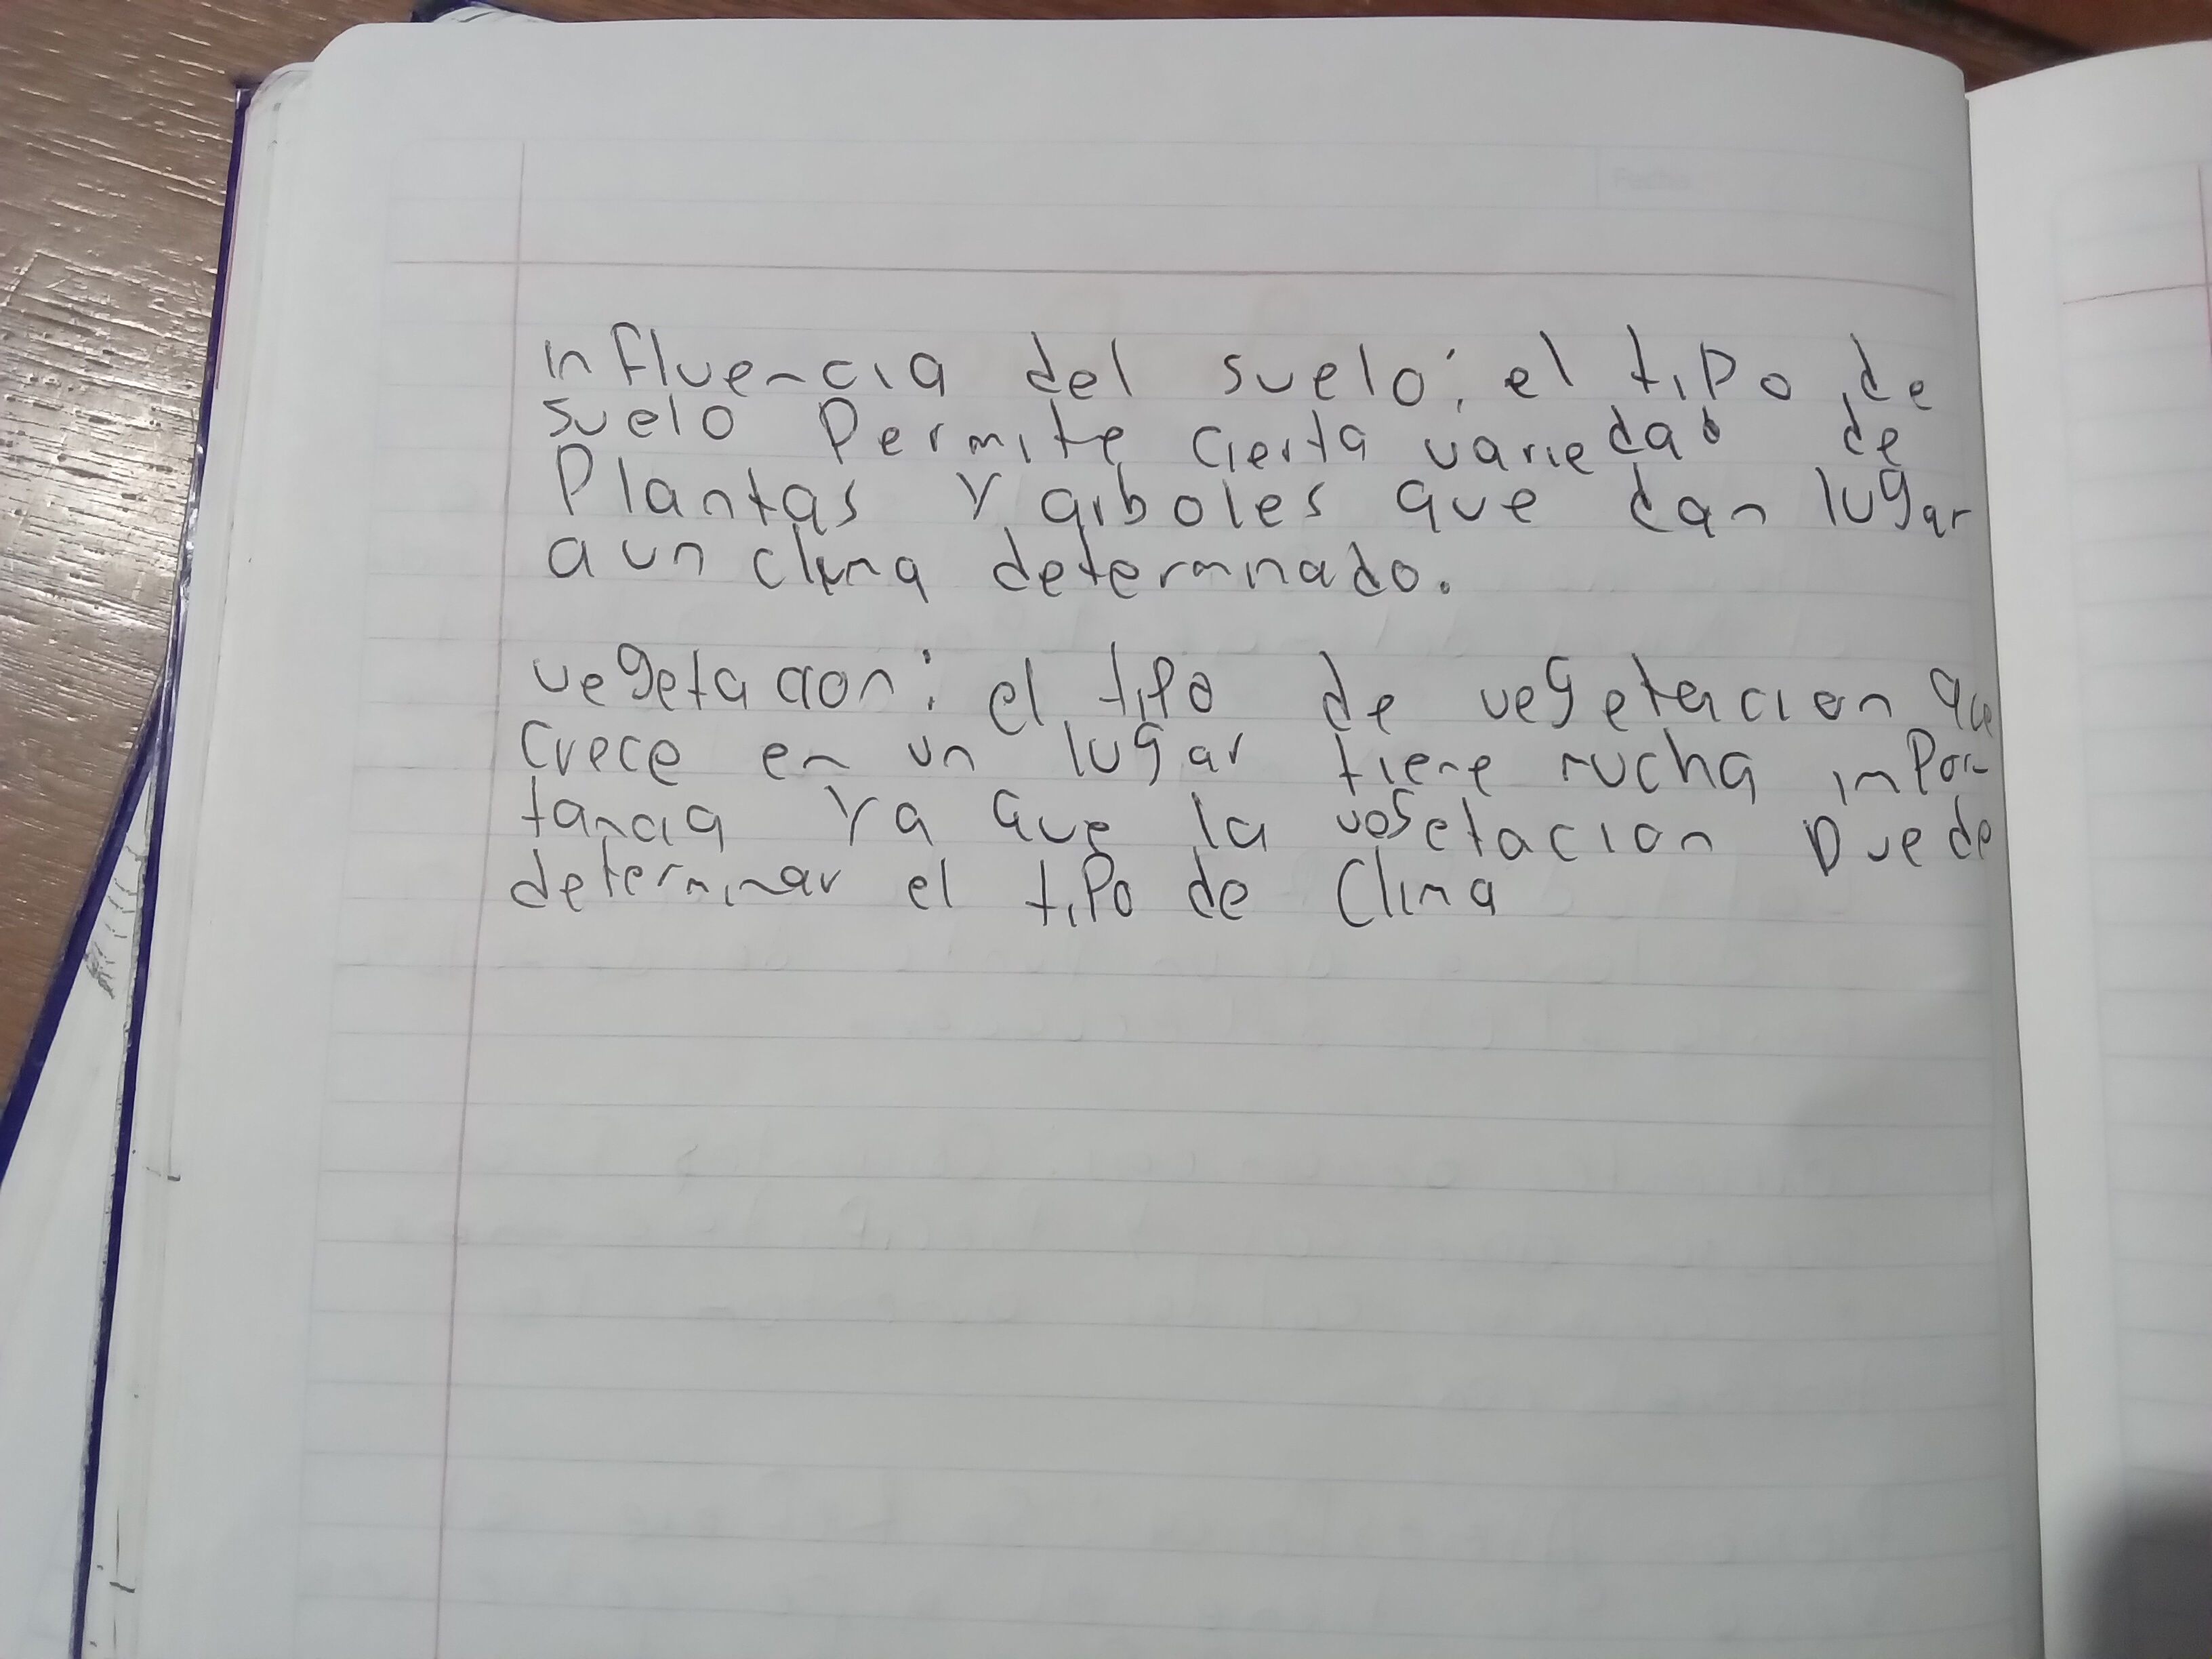 influencia del suelo: el tipo de
suelo Permite cierta variedad de
Plantas y arboles que dan lugar
a un clima determinado.
vegetacion: el tipo de vegetacion que
crece en un lugar tiene mucha inpor-
tancia ya que la vegetacion puede
determinar el tipo de clima